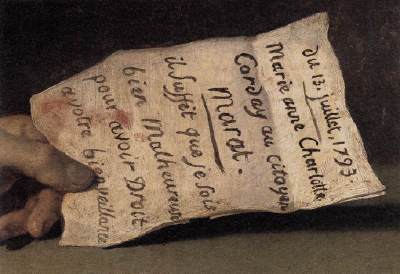 du 13. juillet, 1793.
Marie anne Charlotte
Corday au citoyen
marat.
il suffit que je sois
bien Malheureuse
pour avoir Droit
a votre bienveillance